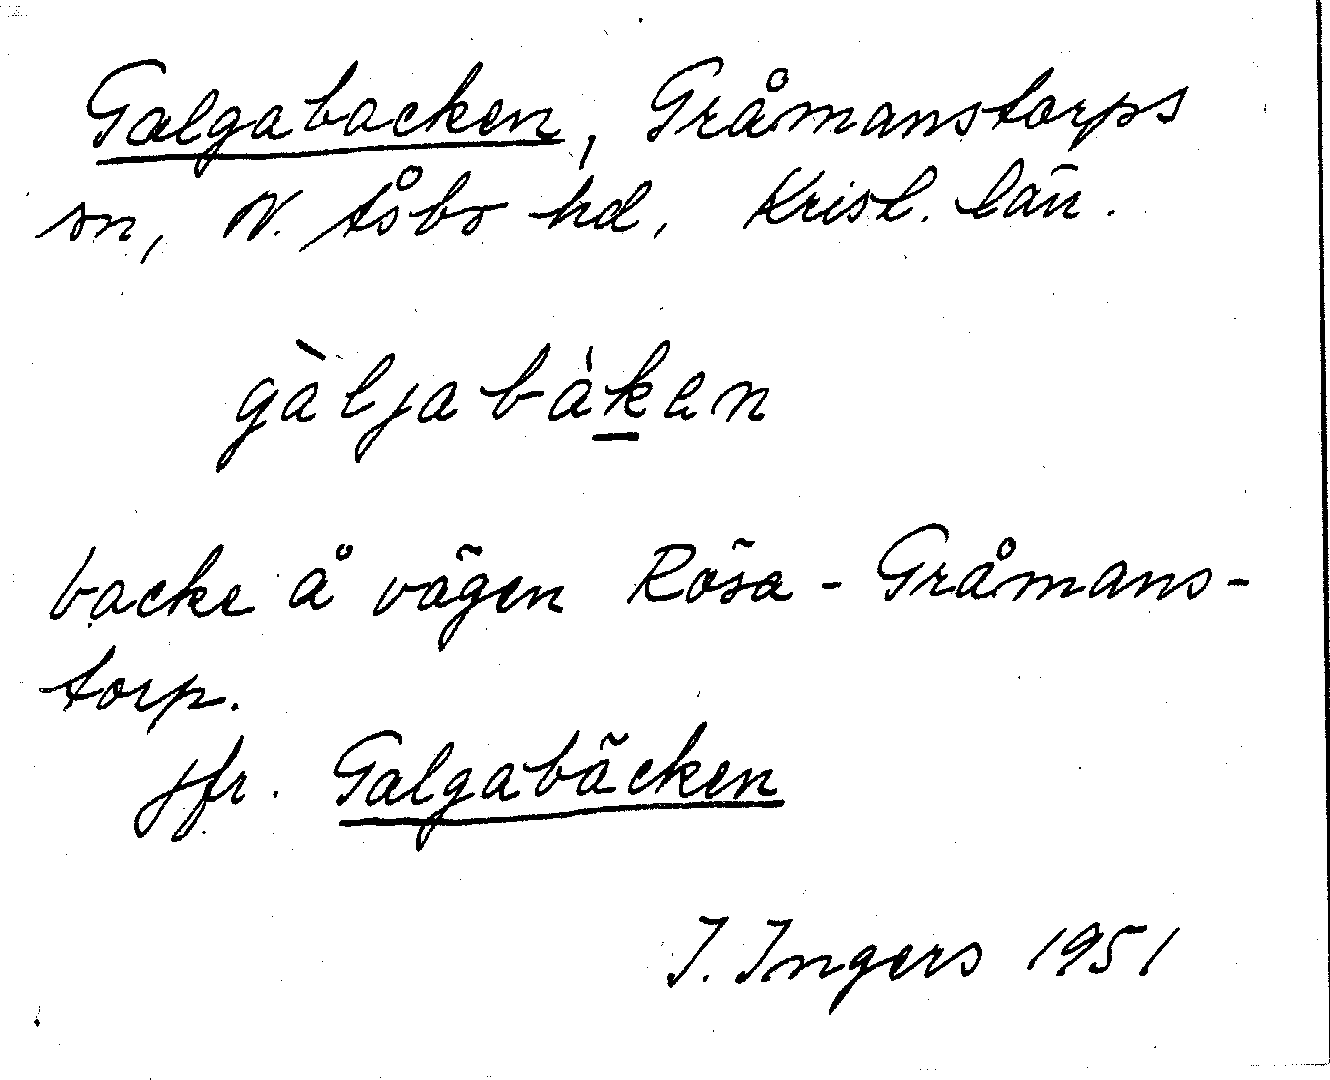 Galgabacken, Gråmanstorps
sn, N. Åsbo hd, Krist. län.
gàljabáken
backe å vägen Rösa - Gråmans-
torp.
jfr. Galgabäcken
I. Ingers 1951